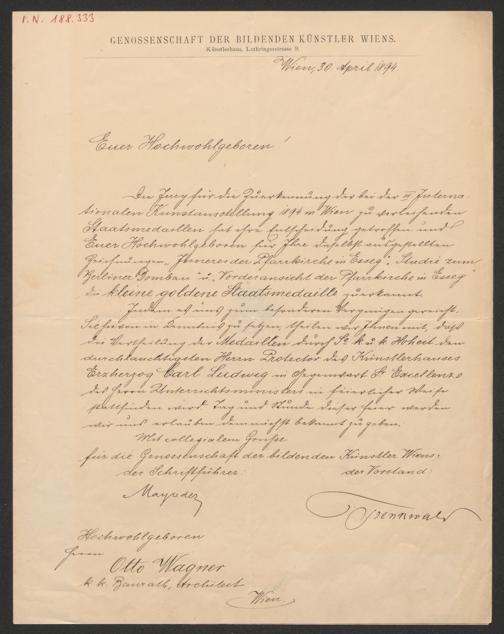 I.N. 188.333
GENOSSENSCHAFT DER BILDENDEN KÜNSTLER WIENS.
Künstlerhaus, Lothringerstrasse 9.
Wien, 30 April 1894.
Euer Hochwohlgeboren!
Die Jury für die Zuerkennung der bei der III Interna-
tionalen Kunstausstellung 1894 in Wien zu verleihenden
Staatsmedaillen hat ihre Entscheidung getroffen und
Euer Hochwohlgeboren für Ihre daselbst ausgestellten
Zeichnungen „Inneres der Pfarrkirche in Esseg", Studie zum
Berliner Dombau" u. „Vorderansicht der Pfarrkirche in Esseg"
die kleine goldene Staatsmedaille zuerkannt.
Indem es uns zum besonderen Vergnügen gereicht,
Sie hievon in Kenntnis zu setzen, theilen wir Ihnen mit, daß
die Vertheilung der Medaillen durch Se k. u. k. Hoheit den
durchlauchtigsten Herrn Protector des Künstlerhauses
Erzherzog Carl Ludwig in Gegenwart Sr Excellenz
des Herrn Unterrichtsministers in feierlicher Weise
stattfinden wird. Tag und Stunde dieser Feier werden
wir uns erlauben demnächst bekannt zu geben.
Mit collegialem Grusse
für die Genossenschaft der bildenden Künstler Wiens:
der Schriftführer: der Vorstand:
Mayreder Trenkwald
Hochwohlgeboren
Herrn
Otto Wagner
k. k. Baurath, Architect
Wien